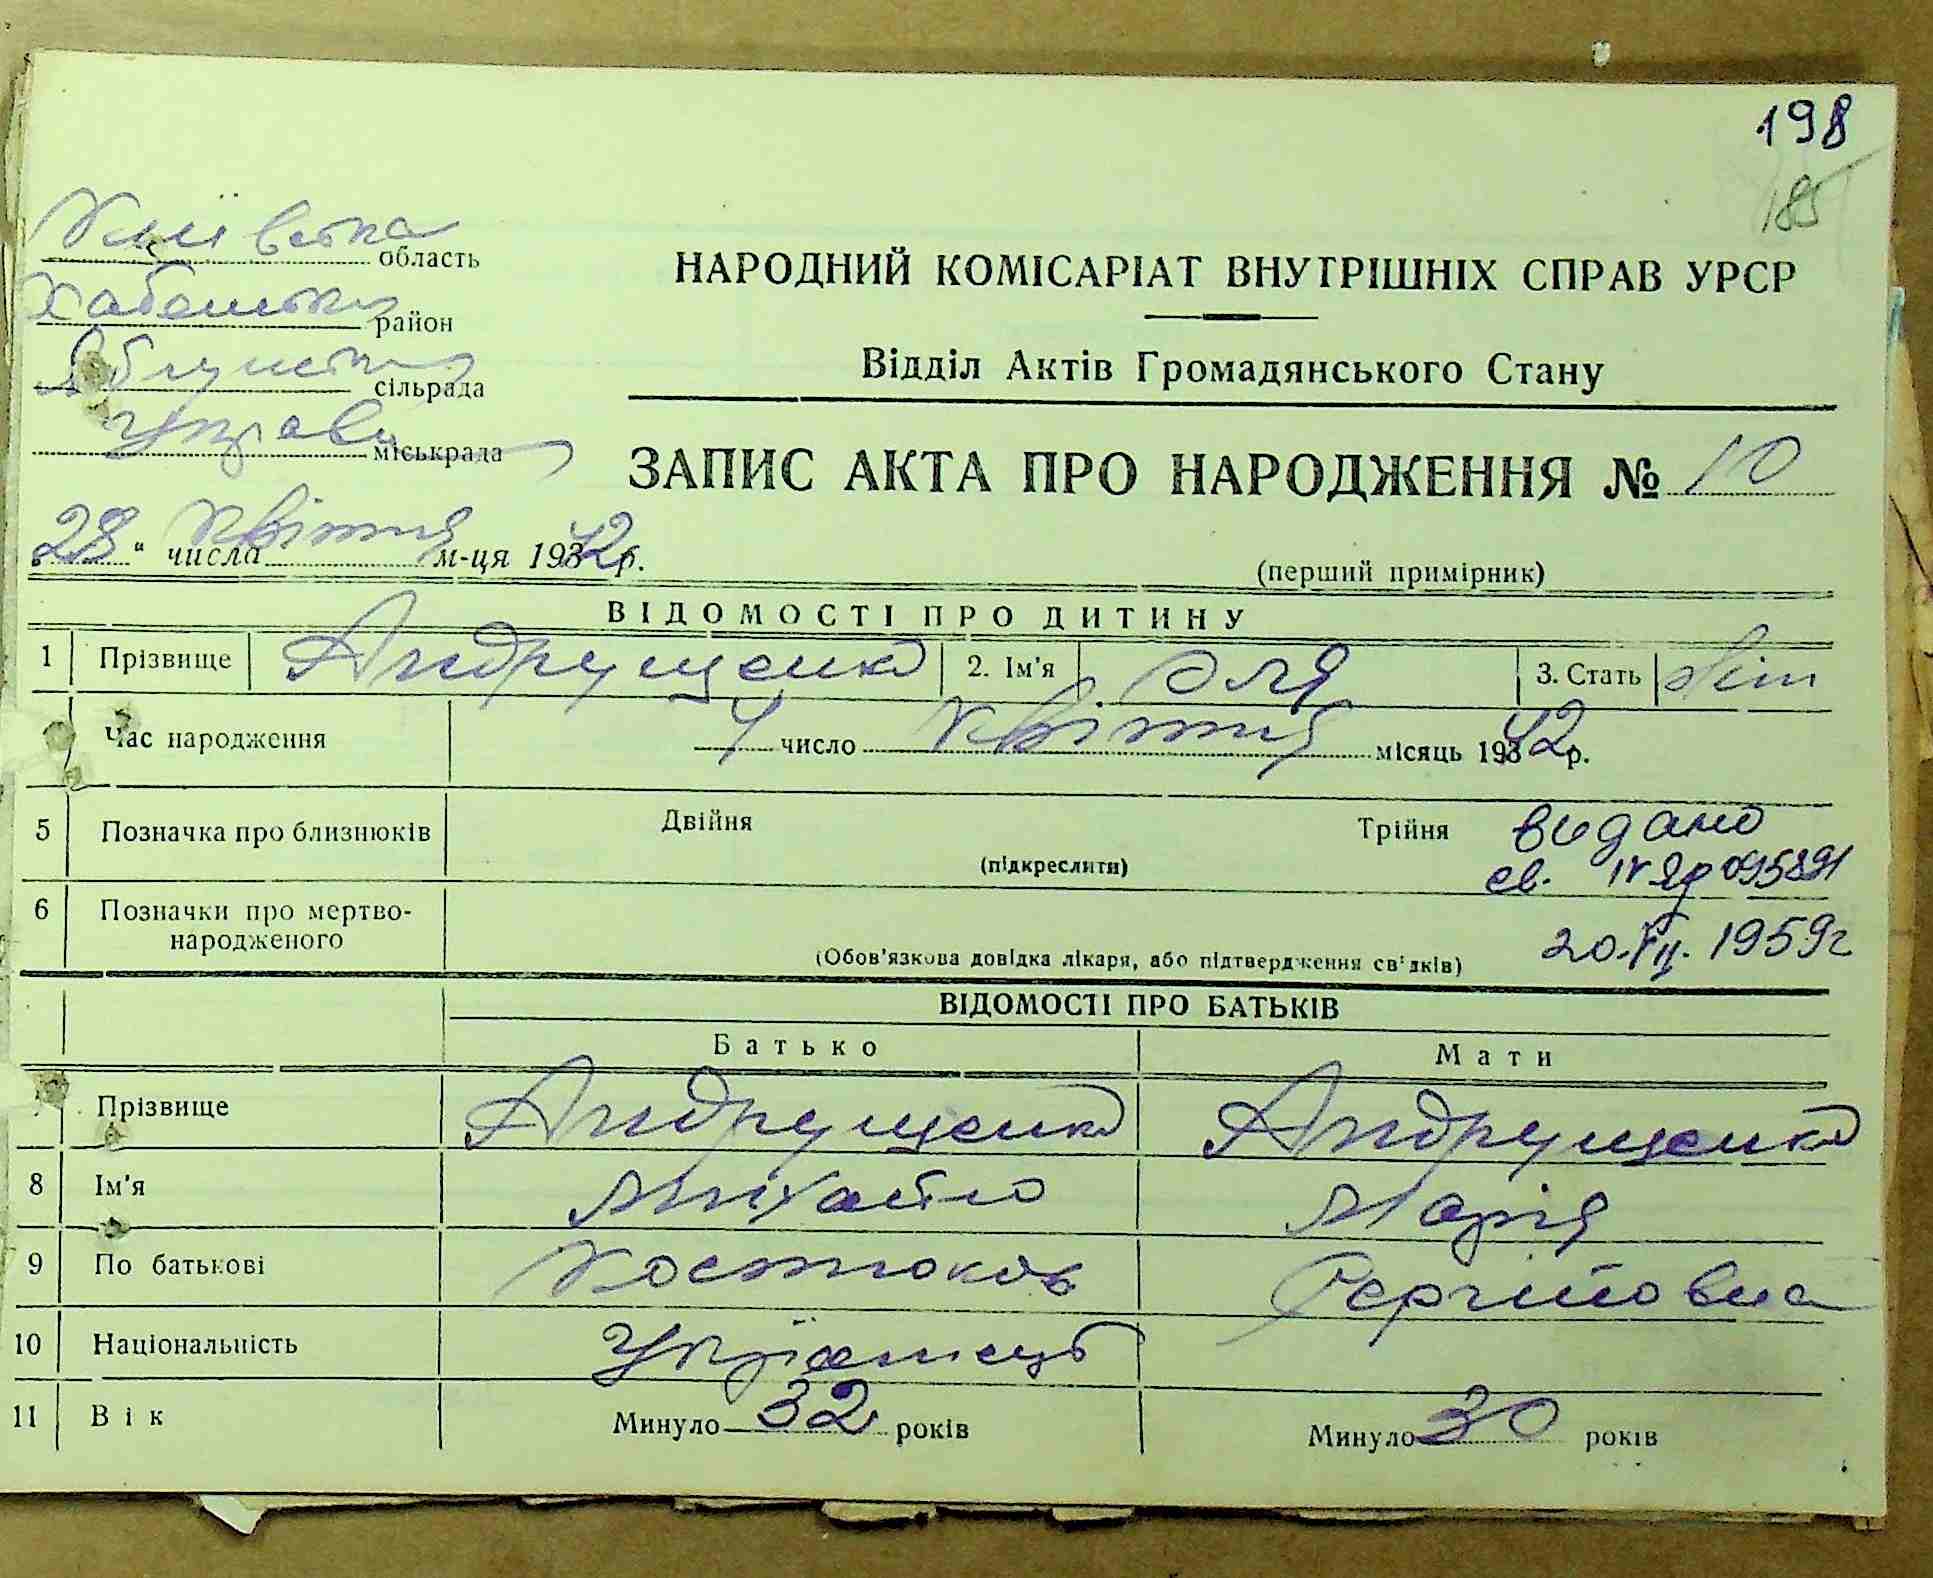 198
185
Київська область
Хабенський район
сільрада
Управа міськрада
НАРОДНИЙ КОМІСАРІАТ ВНУТРІШНІХ СПРАВ УРСР
Відділ Актів Громадянського Стану
ЗАПИС АКТА ПРО НАРОДЖЕННЯ № 10
„28“ числа Квітня м-ця 1942 р.
(перший примірник)
ВІДОМОСТІ ПРО ДИТИНУ
1 Прізвище Андрущенко 2. Ім'я Оля 3. Стать жін
Час народження 4 число Квітня місяць 1942 р.
5 Позначка про близнюків Двійня Трійня
(підкреслити)
видано
св. 095891
20.VII. 1959г
6 Позначки про мертво-
народженого
(Обов'язкова довідка лікаря, або підтвердження свідків)
ВІДОМОСТІ ПРО БАТЬКІВ
Батько Мати
7 Прізвище Андрущенко Андрущенко
8 Ім'я Михайло Марія
9 По батькові Костюков Сергійовна
10 Національність Українець
11 Вік Минуло 32 років Минуло 30 років